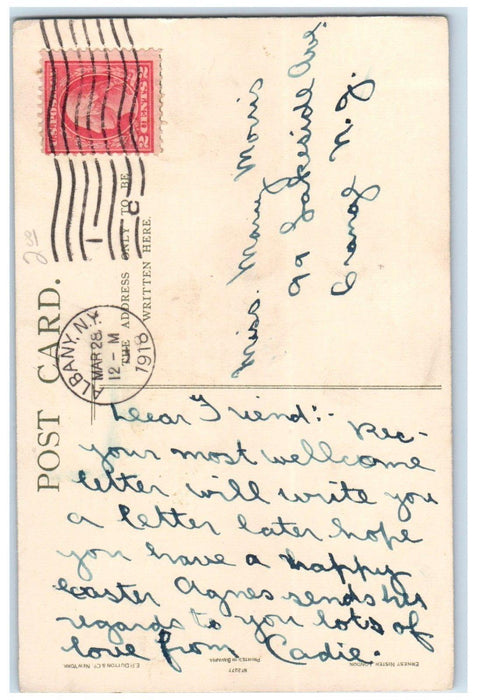 U.S. POSTAGE
2 CENTS 2
POST CARD.
THE ADDRESS ONLY TO BE
WRITTEN HERE.
ALBANY, N.Y.
MAR 28
12 - M
1918
Miss. Mary Morris
99 Lakeside Ave
Orange N.J.
Dear Friend:- Rec-
your most wellcome
letter will write you
a letter later hope
you have a happy
easter Agnes sends his
regards to you lots of
love from Cadie.
E.P. DUTTON & CO. NEW YORK.
PRINTED IN BAVARIA
ERNEST NISTER, LONDON.